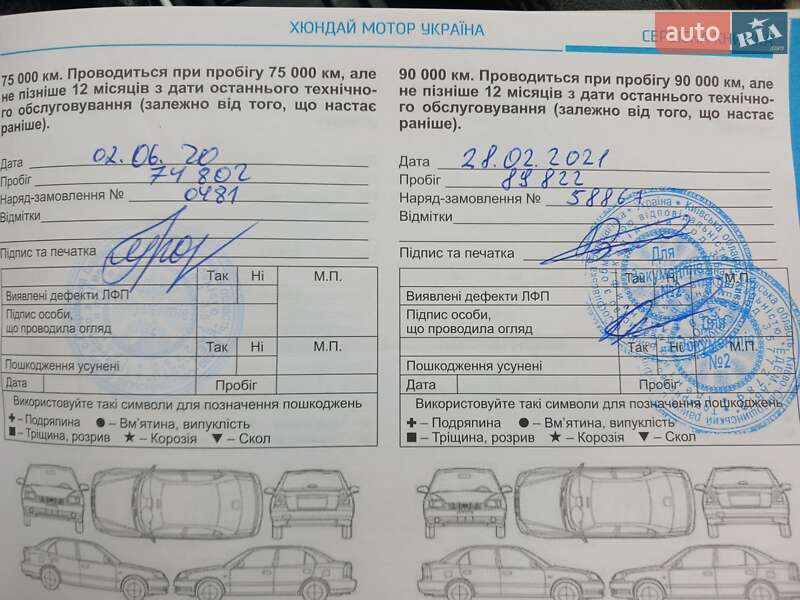 ХЮНДАЙ МОТОР УКРАЇНА
auto RIA .com
75 000 км. Проводиться при пробігу 75 000 км, але
не пізніше 12 місяців з дати останнього технічно-
го обслуговування (залежно від того, що настає
раніше).
Дата 02.06.20
Пробіг 74 802
Наряд-замовлення № 0481
Відмітки
Підпис та печатка
Так Ні М.П.
Виявлені дефекти ЛФП
Підпис особи,
що проводила огляд
Так Ні М.П.
Пошкодження усунені
Дата Пробіг
Використовуйте такі символи для позначення пошкоджень
+ - Подряпина ● – Вм'ятина, випуклість
■ - Тріщина, розрив ★ - Корозія ▼ – Скол
90 000 км. Проводиться при пробігу 90 000 км, але
не пізніше 12 місяців з дати останнього технічно-
го обслуговування (залежно від того, що настає
раніше).
Дата 28.02.2021
Пробіг 89822
Наряд-замовлення № 58867
Відмітки
Підпис та печатка
Для
документів
№2
Так Ні М.П.
Виявлені дефекти ЛФП
Підпис особи,
що проводила огляд
Для
документів
№2
Так Ні М.П.
Пошкодження усунені
Дата Пробіг
Використовуйте такі символи для позначення пошкоджень
+ - Подряпина ● – Вм'ятина, випуклість
■ - Тріщина, розрив ★ - Корозія ▼ – Скол